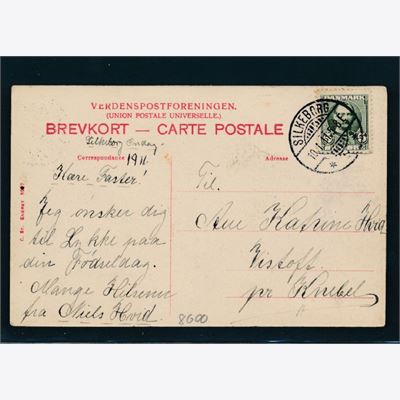 VERDENSPOSTFORENINGEN.
(UNION POSTALE UNIVERSELLE.)
BREVKORT — CARTE POSTALE
Silkeborg Onsdag
Correspondance 19 11
Adresse
DANMARK
SILKEBORG
Kære Faster!
Jeg ønsker dig
til Lykke paa
din Fødseldag.
Mange Hilsener
fra Niels Hvid.
Til.
Ane Katrine Hvid
Vistoft
pr Knebel
8600